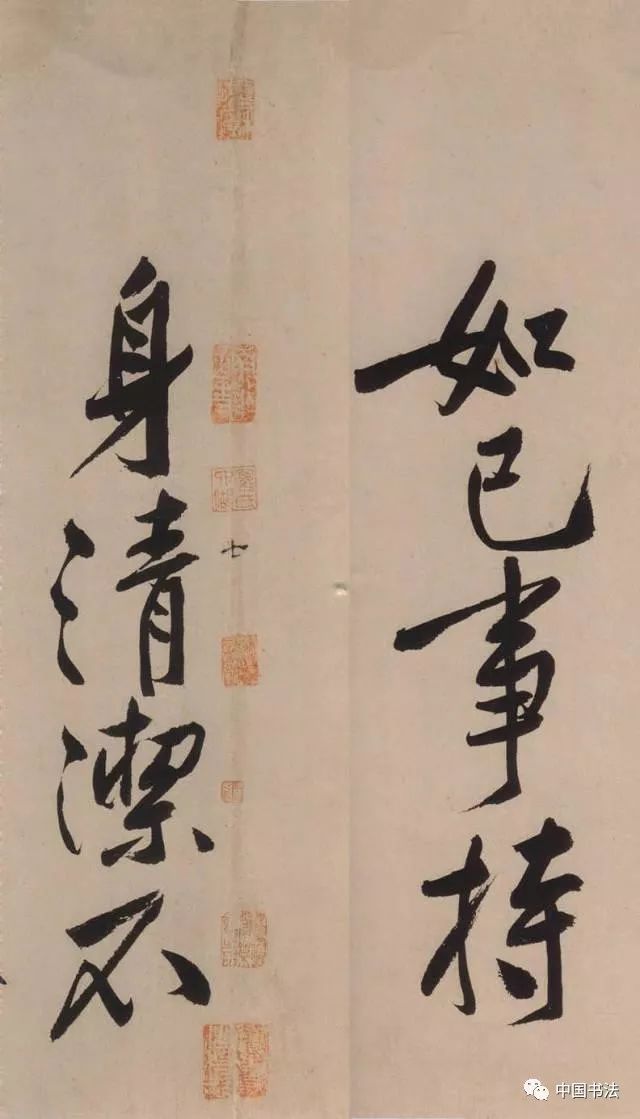 如己事持
七
身清潔不
中国书法